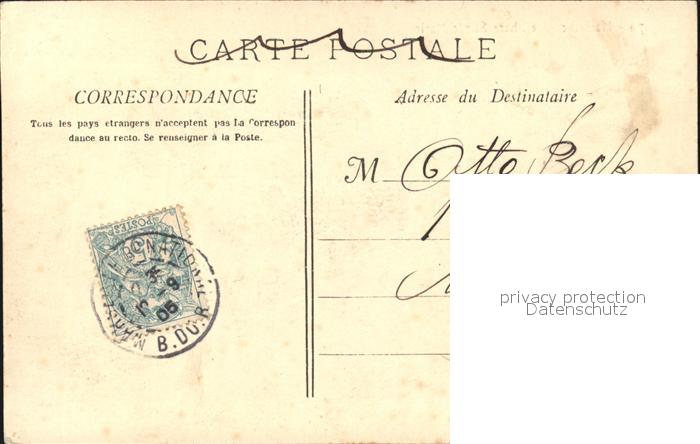 CARTE POSTALE
CORRESPONDANCE
Tous les pays étrangers n'acceptent pas la Correspon
dance au recto. Se renseigner à la Poste.
Adresse du Destinataire
M Otto Beck
privacy protection
Datenschutz
POSTES
NATIONALE
05
B. DU R.